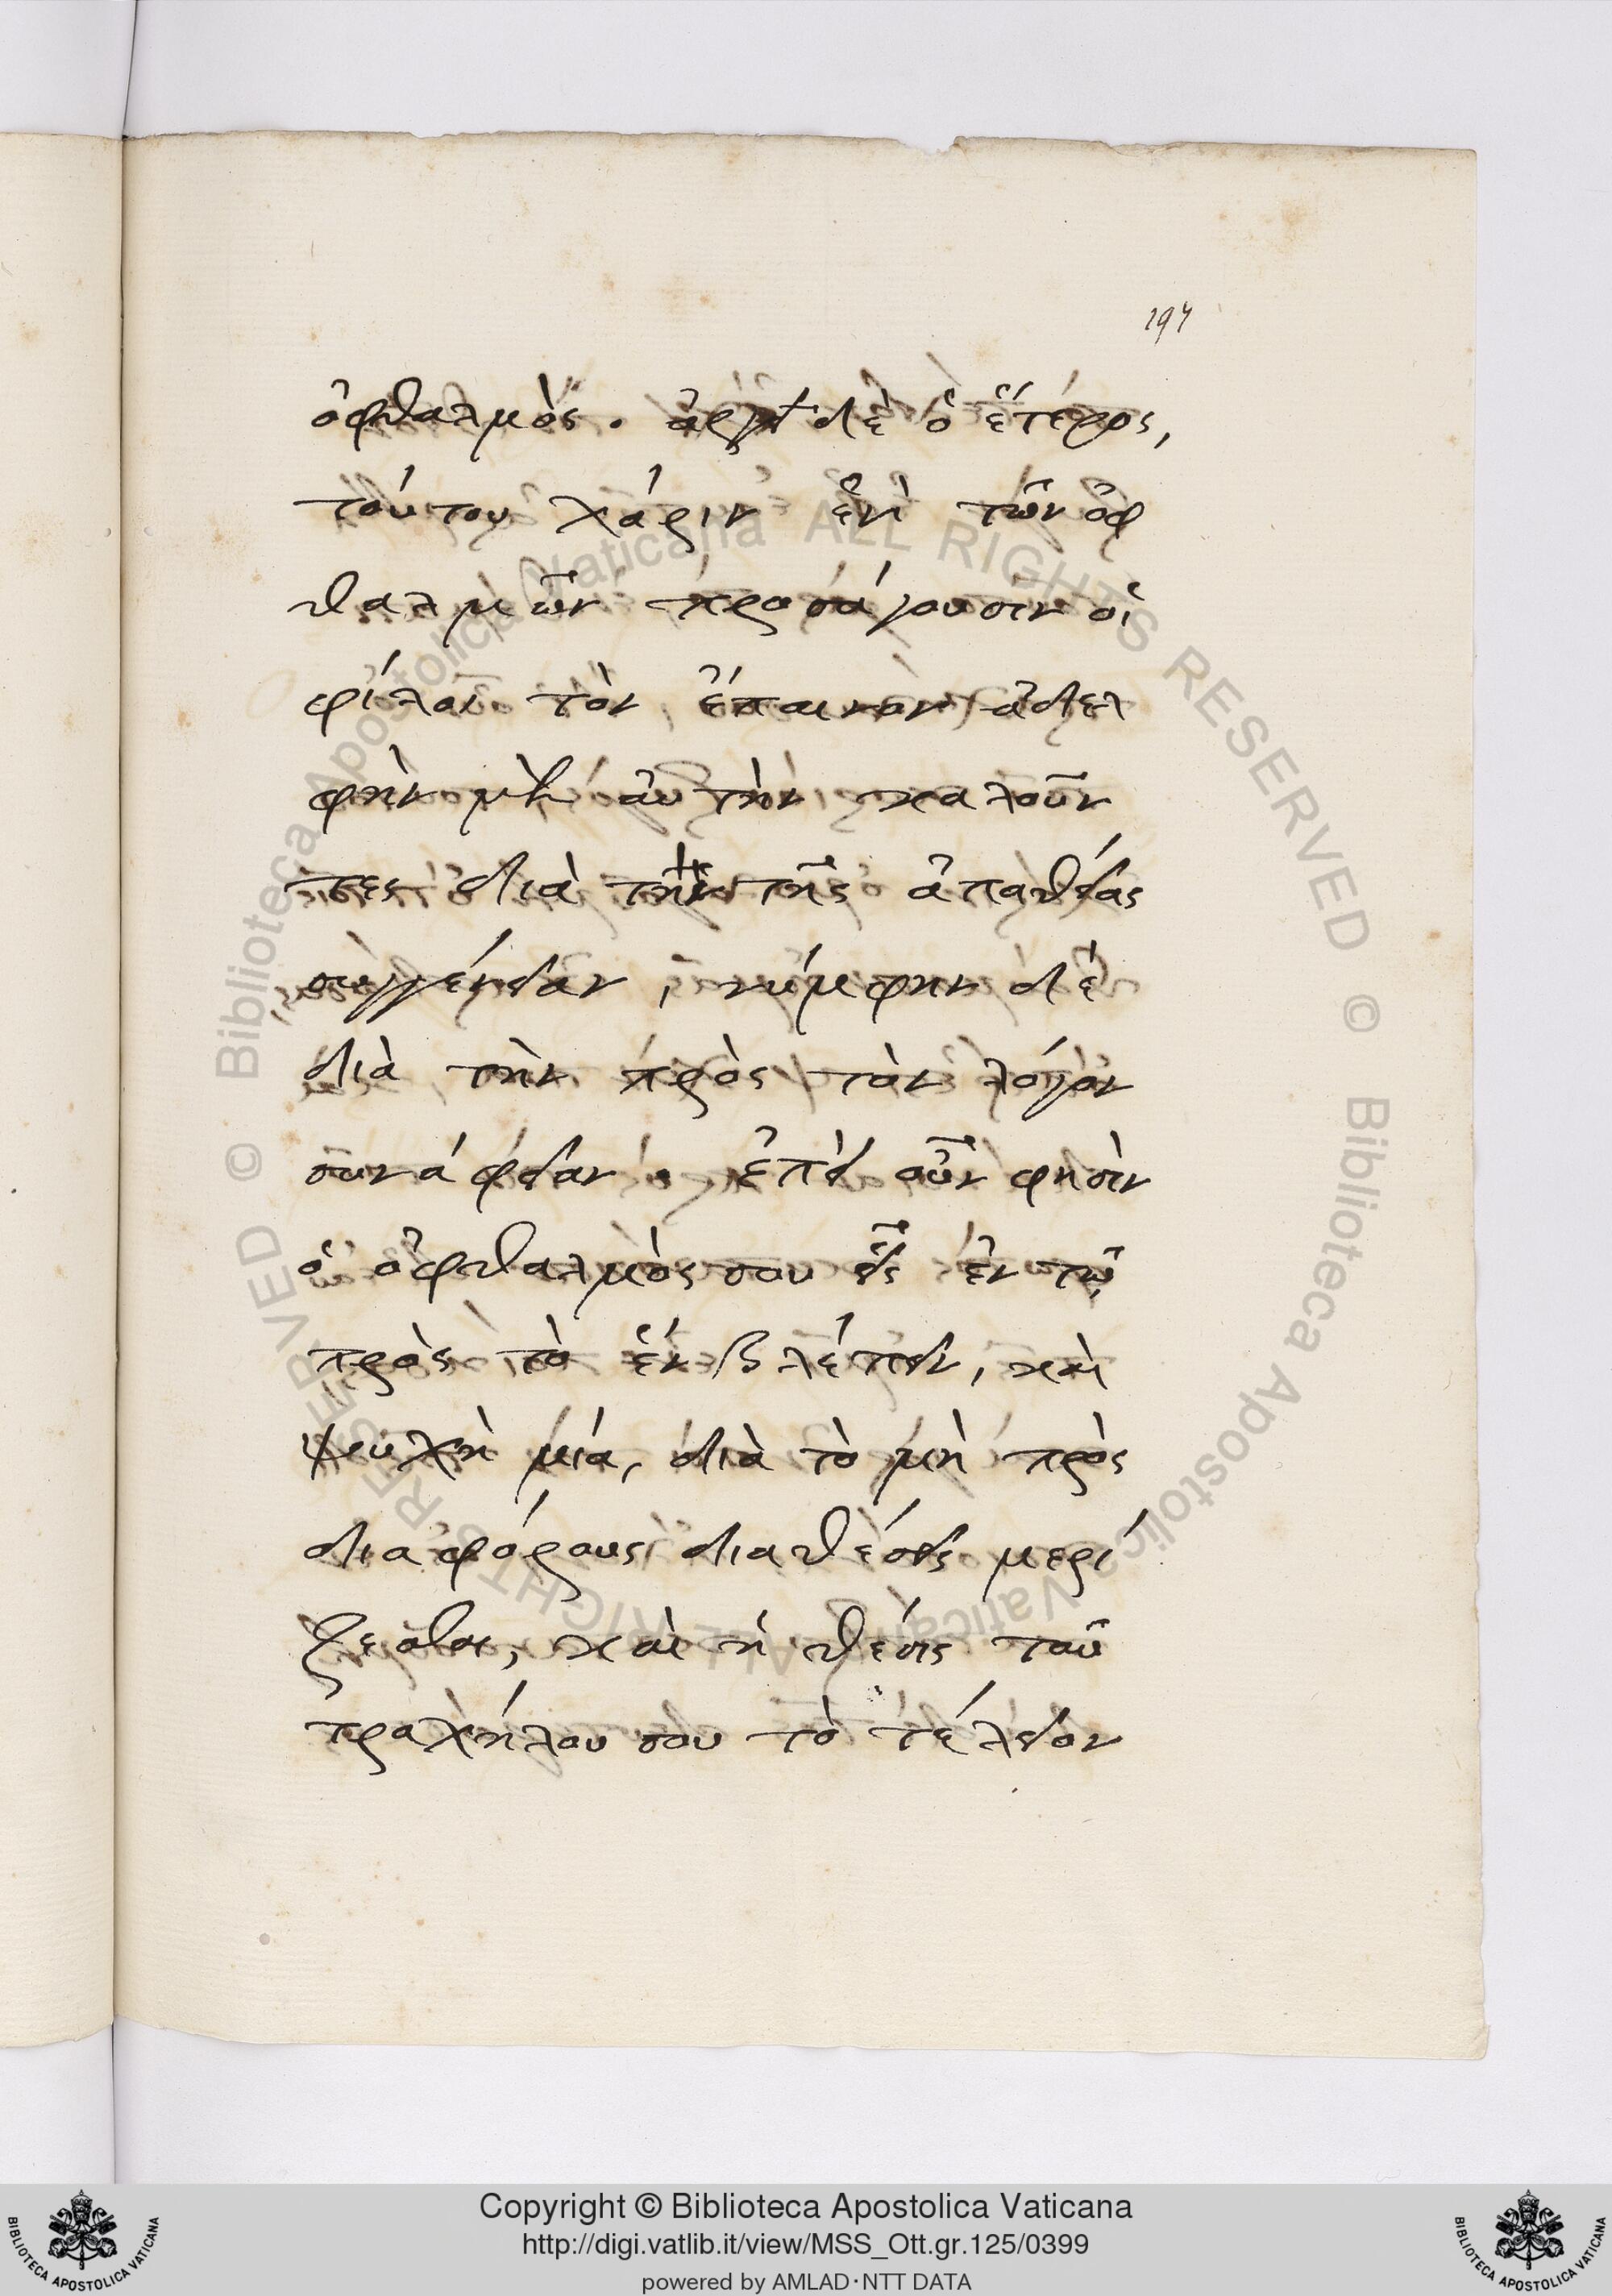 197
ὀφθαλμὸς. ἀργὸς δὲ ὁ ἕτερος,
τούτου χάριν ἑνὶ τῶν ὀφ
θαλμῶν προσάγουσιν οἱ
φίλοι τὸν ἔπαινον ἀδελ
φὴν μὲν αὐτὴν καλοῦν
τες διὰ τὴν τῆς ἀπαθείας
συγγένειαν, νύμφην δὲ
διὰ τὴν πρὸς τὸν λόγον
συνάφειαν. ἐπεὶ οὖν φησὶν
ὁ ὀφθαλμὸς σου εἷς ἐν τῷ
πρὸς τὸ ἓν βλέπειν, καὶ
ψυχὴ μία, διὰ τὸ μὴ πρὸς
διαφόρους διαθέσεις μερί
ζεσθαι, καὶ ἡ θέσις τοῦ
τραχήλου σου τὸ τέλειον
© Biblioteca Apostolica Vaticana ALL RIGHTS RESERVED © Biblioteca Apostolica Vaticana ALL RIGHTS RESERVED
BIBLIOTECA APOSTOLICA VATICANA
Copyright © Biblioteca Apostolica Vaticana
http://digi.vatlib.it/view/MSS_Ott.gr.125/0399
powered by AMLAD·NTT DATA
BIBLIOTECA APOSTOLICA VATICANA